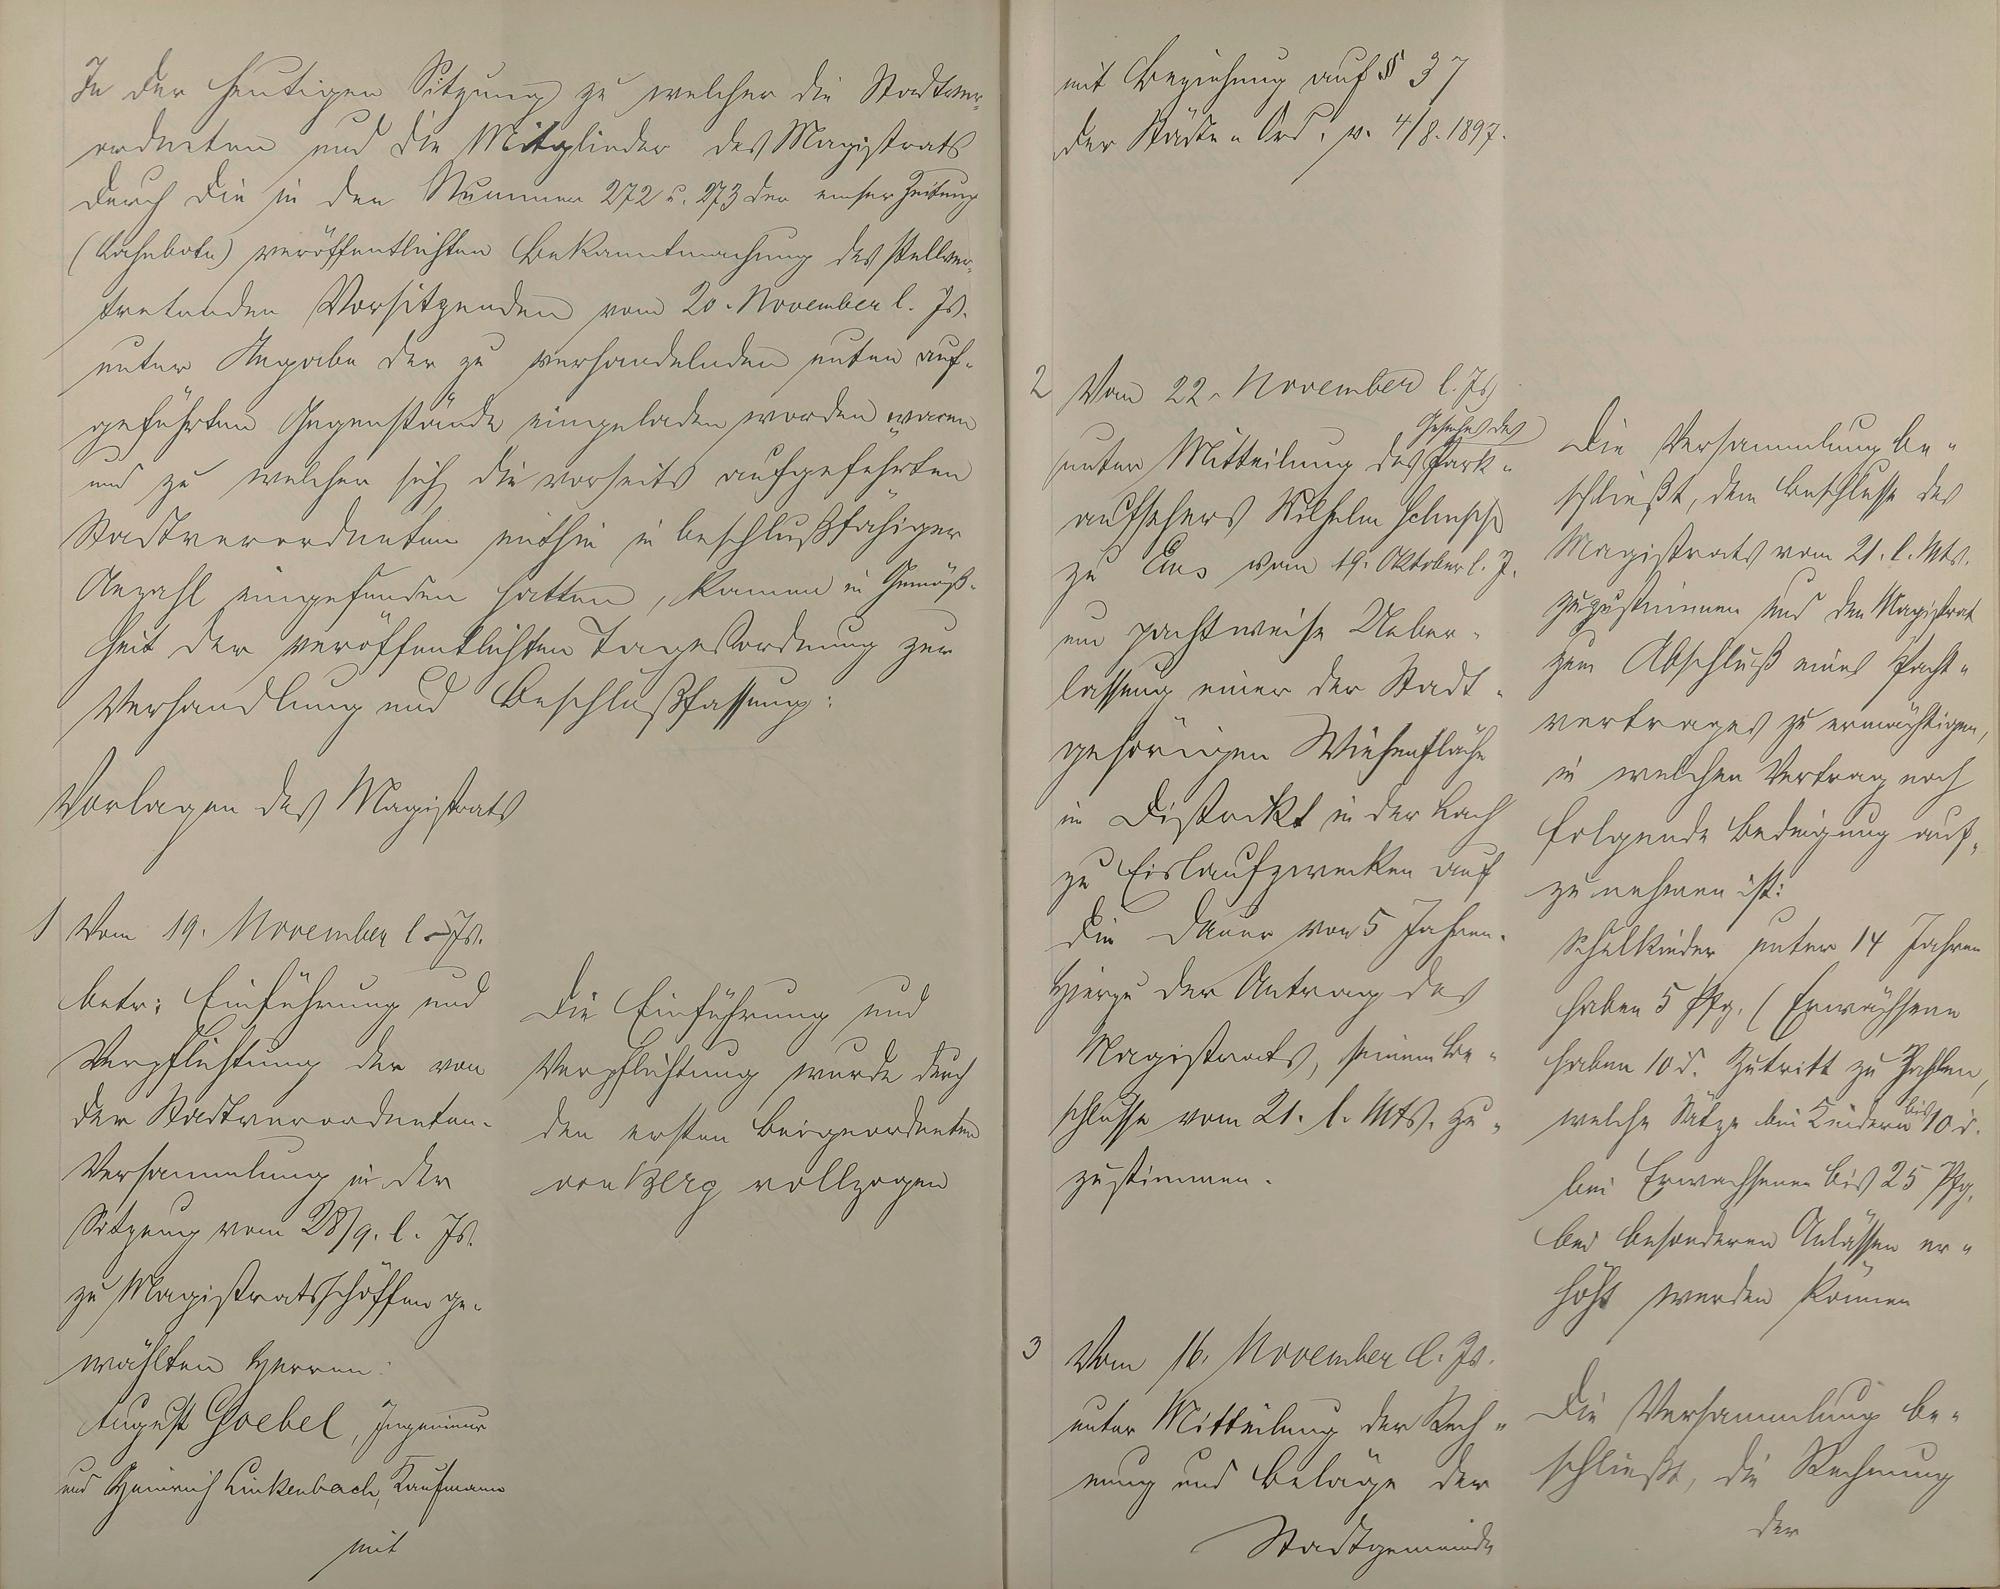 In der heutigen Sitzung zu welcher die Stadtver-
ordneten und die Mitglieder des Magistrats
durch die in den Nummern 272 u. 273 der emser Zeitung
(Lahnbote) veröffentlichten Bekanntmachung des stellver-
tretenden Vorsitzenden vom 20. November l. Js.
unter Angabe der zu verhandelnden unten auf-
geführten Gegenstände eingeladen worden waren
und zu welcher sich die vorseits aufgeführten
Stadtverordneten mithin in beschlußfähiger
Anzahl eingefunden hatten, kamen in Gemäß-
heit der veröffentlichten Tagesordnung zur
Verhandlung und Beschlußfassung:
Vorlagen des Magistrats
1 Vom 19. November l. Js.
betr: Einführung und
Verpflichtung der von
der Stadtverordneten-
Versammlung in der
Sitzung vom 28/9. l. Js.
zu Magistratsschöffen ge-
wählten Herren:
August Goebel, Ingenieur
und Heinrich Linkenbach, Kaufmann
mit
Die Einführung und
Verpflichtung wurde durch
den ersten Beigeordneten
von Berg vollzogen
mit Beziehung auf § 37
der Städte-Ord. v. 4/8. 1897.
2 Vom 22. November l. Js
Gesuches des
unter Mitteilung des Park-
aufsehers Wilhelm
zu Ems vom 19. Oktober l. J.
um pachtweise Ueber-
lassung einer der Stadt-
gehörigen Wiesenfläche
im Distrikt in der Lach
zu Eislaufzwecken auf
die Dauer von 5 Jahren.
Hierzu der Antrag des
Magistrats, seinem Be-
schlusse vom 21. l. Mts. zu-
zustimmen.
Die Versammlung be-
schließt, dem Beschlusse des
Magistrats vom 21. l. Mts.
zuzustimmen und den Magistrat
zum Abschluß eines Pacht-
vertrages zu ermächtigen,
in welchen Vertrag noch
folgende Bedingung auf-
zunehmen ist:
Schulkinder unter 14 Jahren
haben 5 Pfg. (Erwachsene
haben 10 d. Zutritt zu zahlen,
welche Sätze bei Kindern bis 10 d.
bei Erwachsenen bis 25 Pfg.
bei besonderen Anlässen er-
höht werden können
3 Vom 16. November l. Js.
unter Mitteilung der Rech-
nung und Beläge der
Stadtgemeinde
Die Versammlung be-
schließt, die Rechnung
der